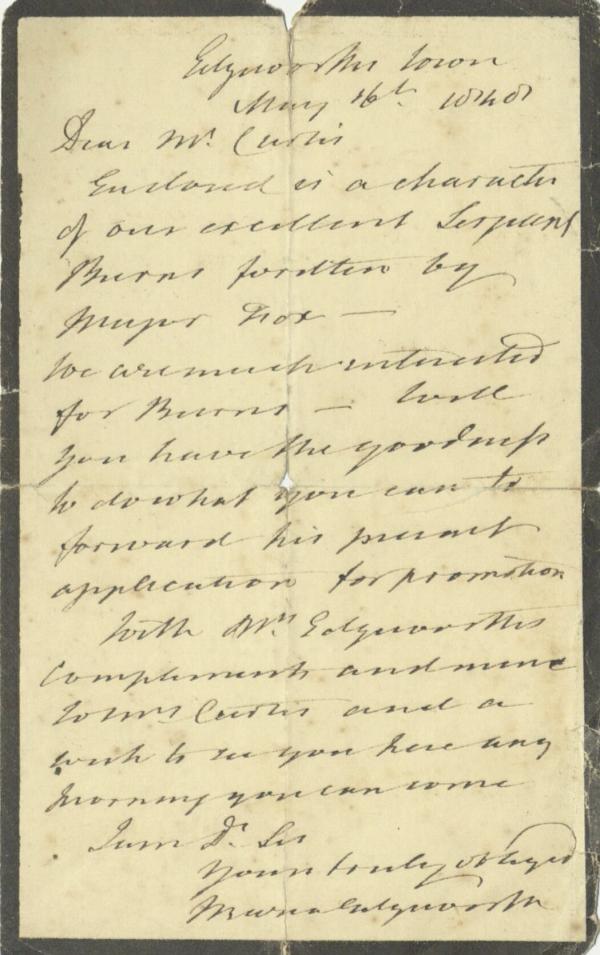 Edgeworths Town
May 16th 1848
Dear Mr. Curtis
Enclosed is a character
of our excellent Serjeant
Burns written by
Major Fox —
We are much interested
for Burns — Will
you have the goodness
to do what you can to
forward his present
application for promotion
With Mrs Edgeworths
Compliments and mine
to Mrs Curtis and a
wish to see you here any
morning you can come
I am Dr. Sir
Yours truly obliged
Maria Edgeworth